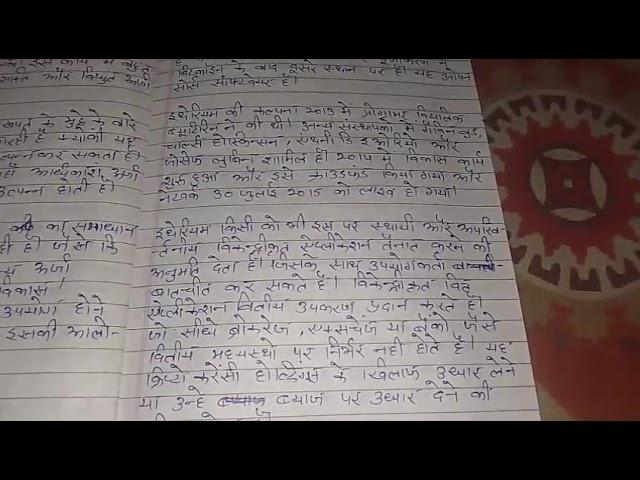 इस काय म बहुत
शक्ति और विद्युत ऊर्जा
खपत के मुद्दे के बारे
क्योंकी यह
उत्पन्न कर सकता है।
ऊर्जा
उत्पन्न होती है।
का समाधान
है। जैसे कि
ऊर्जा
विकास।
उपयोग होने
इसकी आलो-
बिटकॉइन के बाद दूसरे स्थान पर है। यह ओपन
सोर्स सॉफ्टवेयर है।
इथेरियम की कल्पना 2013 में प्रोग्रामर विटालिक
ब्यूटिरिन ने की थी। अन्य संस्थापको में गेविन वुड,
चार्ल्स होस्किन्सन, एंथनी डि इओरियो और
जोसेफ लुबिन शामिल है। 2014 में विकास कार्य
शुरु हुआ और इसे क्राउडफंड किया गया और
नेटवर्क 30 जुलाई 2015 को लाइव हो गया।
इथेरियम किसी को भी इस पर स्थायी और अपरिव-
र्तनीय विकेन्द्रीकृत एप्लीकेशन तैनात करने की
अनुमति देता है। जिसके साथ उपयोगकर्ता
बातचीत कर सकते है। विकेन्द्रीकृत वित्त
एप्लीकेशन वित्तीय उपकरण प्रदान करते है।
जो सीधे ब्रोकरेज, एक्सचेंज या बैंको जैसे
वित्तीय मध्यस्थो पर निर्भर नही होते है। यह
क्रिप्टो करेंसी होल्डिंग्स के खिलाफ उधार लेने
या उन्हे ब्याज पर उधार देने की